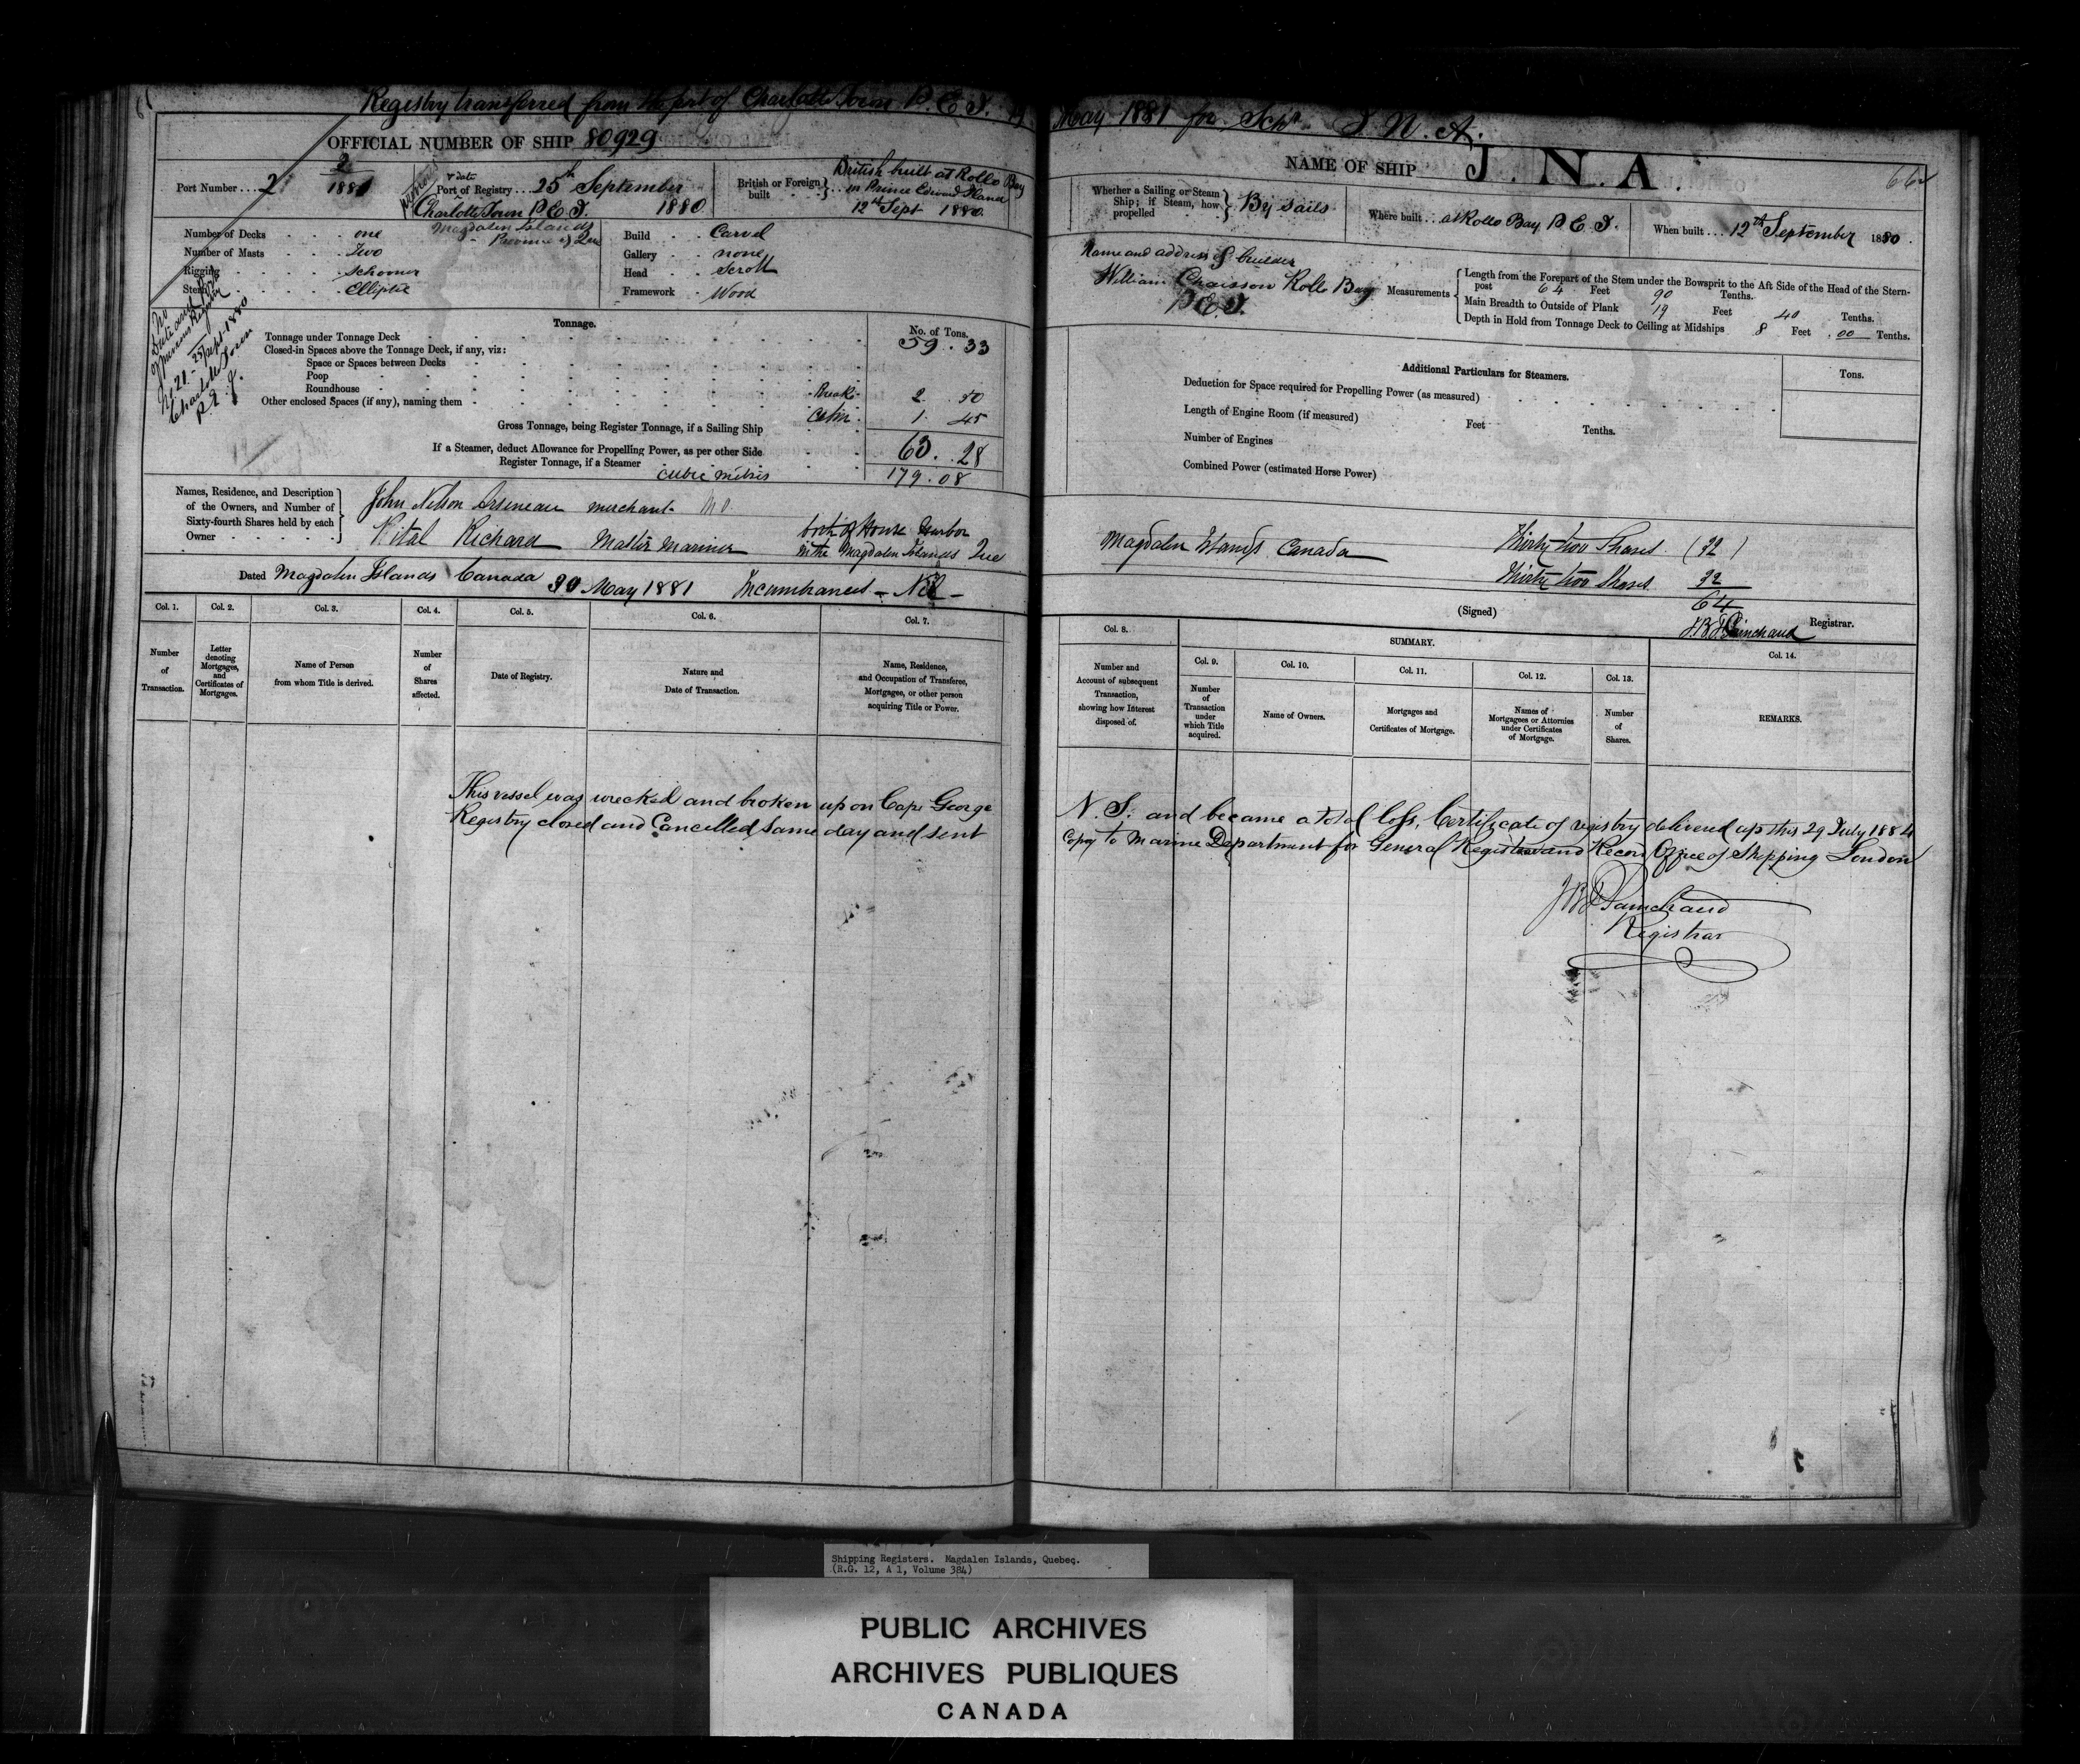 Registry transferred from the port of Charlotte Town P. E. I. 19 May 1881 for Schr. J. N. A.
OFFICIAL NUMBER OF SHIP 80929
Port Number ... 2
2
1881
previous
& date
Port of Registry ... 25th September
Charlotte Town P E I. 1880
Magdalen Islands
Province of Que
British or Foreign built
British built at Rollo Bay
in Prince Edward Island
12th Sept 1880.
Number of Decks one
Number of Masts Two
Rigging Schooner
Stern Elliptic
Build Carvel
Gallery none
Head Scroll
Framework Wood
No
Date and Port
of previous Registry
No. 21 - 25 Sept 1880
Charlotte Town
P. E. I.
Tonnage.
No. of Tons.
Tonnage under Tonnage Deck 59 . 33
Closed-in Spaces above the Tonnage Deck, if any, viz:
Space or Spaces between Decks
Poop
Roundhouse Break 2 . 50
Other enclosed Spaces (if any), naming them Cabin 1 . 45
Gross Tonnage, being Register Tonnage, if a Sailing Ship 63 . 28
If a Steamer, deduct Allowance for Propelling Power, as per other Side
Register Tonnage, if a Steamer
cubic metres 179.08
Names, Residence, and Description of the Owners, and Number of Sixty-fourth Shares held by each Owner
John Nelson Arseneau merchant
Vital Richard Master Mariner both of House Harbor
in the Magdalen Islands Que
Dated Magdalen Islands Canada 30 May 1881 Incumbrances - Nil -
Col. 1. Col. 2. Col. 3. Col. 4. Col. 5. Col. 6. Col. 7.
Number of Transaction.
Letter denoting Mortgages, and Certificates of Mortgages.
Name of Person from whom Title is derived.
Number of Shares affected.
Date of Registry.
Nature and Date of Transaction.
Name, Residence, and Occupation of Transferee, Mortgagee, or other person acquiring Title or Power.
This vessel was wrecked and broken up on Cape George
Registry closed and Cancelled same day and sent
NAME OF SHIP J. N. A.
662
Whether a Sailing or Steam Ship; if Steam, how propelled By sails
Where built ... at Rollo Bay P E I.
When built ... 12th September 1880.
Name and address of builder
William Chaisson Rollo Bay
P.E.I.
Measurements
Length from the Forepart of the Stem under the Bowsprit to the Aft Side of the Head of the Stern-
post 64 Feet 90 Tenths.
Main Breadth to Outside of Plank 19 Feet 40 Tenths.
Depth in Hold from Tonnage Deck to Ceiling at Midships 8 Feet .00 Tenths.
Additional Particulars for Steamers.
Tons.
Deduction for Space required for Propelling Power (as measured)
Length of Engine Room (if measured) Feet Tenths.
Number of Engines
Combined Power (estimated Horse Power)
Magdalen Islands Canada Thirty two Shares (32)
Thirty two Shares 32
64
(Signed) J.B.F. Painchaud Registrar.
Col. 8.
SUMMARY.
Col. 9. Col. 10. Col. 11. Col. 12. Col. 13. Col. 14.
Number and Account of subsequent Transaction, showing how Interest disposed of.
Number of Transaction under which Title acquired.
Name of Owners.
Mortgages and Certificates of Mortgage.
Names of Mortgagees or Attornies under Certificates of Mortgage.
Number of Shares.
REMARKS.
N. S. and became a total loss, Certificate of registry delivered up this 29 July 1884
Copy to Marine Department for General Register and Record Office of Shipping London
J B F Painchaud
Registrar
Shipping Registers. Magdalen Islands, Quebec.
(R.G. 12, A 1, Volume 384)
PUBLIC ARCHIVES
ARCHIVES PUBLIQUES
CANADA